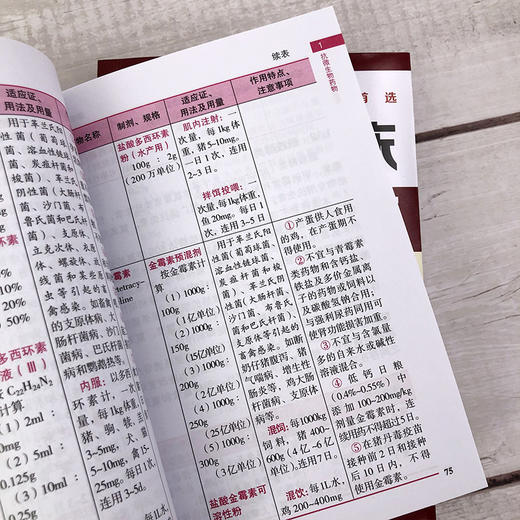 续表
1
抗微生物药物
适应证、
用法及用量
物名称
制剂、规格
适应证、
用法及用量
作用特点、
注意事项
用于革兰氏阳
性菌（葡萄球
菌、溶血性链球
菌、炭疽杆菌、
梭菌）、革兰氏
阴性菌（大肠杆
菌、沙门菌、布
鲁氏菌和巴氏杆
菌）、支原体、
立克次体、衣原
体、螺旋体、放
线菌和某些原
虫等引起的畜
禽感染。如畜禽
的支原体病、大
肠杆菌病、沙门
菌病、巴氏杆菌
病和鹦鹉热等。
内服：以多西
环素计，一次
量，每1kg体重，
猪、驹、犊、羔
3~5mg，犬、猫
5~10mg，禽15~
25mg。每日1次，
连用3~5日。
10%
20%
50%
多西环素
液（Ⅲ）
C₂₂H₂₄N₂
计算
（1）2ml：
0.05g
（2）5ml：
0.125g
（3）10ml：
0.25g
盐酸多西环素
粉（水产用）
100g：2g
（200万单位）
肌内注射：一
次量，每1kg体
重，猪5~10mg。
一日1次，连用
2~3日。
拌饵投喂：一
次量，每1kg体重，
鱼20mg。每日1
次，连用3~5日
金霉素
tetracy-
line
金霉素预混剂
按金霉素计
算
（1）1000g：
100g
（1亿单位）
（2）1000g：
150g
（15亿单位）
（3）1000g：
200g
（2亿单位）
（4）1000g：
250g
（25亿单位）
（5）1000g：
300g
（3亿单位）
盐酸金霉素可
溶性粉
用于革兰氏阳
性菌（葡萄球菌、
溶血性链球菌、
炭疽杆菌和梭
菌）、革兰氏阴性
菌（大肠杆菌、
沙门菌、布鲁氏
菌和巴氏杆菌）
及支原体等引起
的畜禽感染。如
断奶仔猪腹泻、猪
气喘病、增生性
肠炎等，鸡大肠
杆菌病、支原体
病等。
混饲：每1000kg
饲料，猪400~
600g（4亿~6亿
单位）。连用7日。
混饮：每1L水，
鸡200~400mg
①产蛋供人食用
的鸡，在产蛋期不
得使用。
②不宜与青霉素
类药物和含钙盐、
铁盐及多价金属离
子的药物或饲料以
及碳酸氢钠合用；
与强利尿药同用可
使肾功能损害加重。
③不宜与含氯量
多的自来水或碱性
溶液混合。
④低钙日粮
（0.4%~0.55%）中
添加100~200mg/kg
剂量金霉素时，连
续用药不得超过5日。
⑤在猪丹毒疫苗
接种前2日和接种
后10日内，不得
使用金霉素。
75
首选